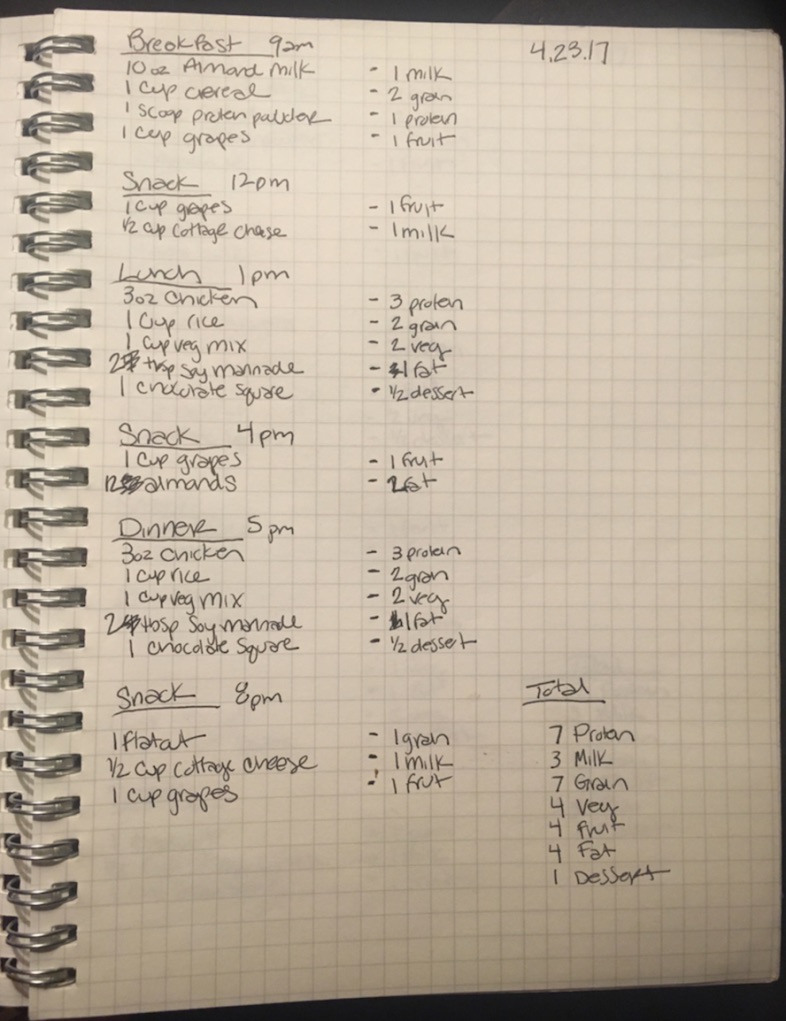 Breakfast 9am 4.23.17
10oz Almond Milk - 1 milk
1 cup cereal - 2 grain
1 scoop protein powder - 1 protein
1 cup grapes - 1 fruit
Snack 12pm
1 cup grapes - 1 fruit
1/2 cup cottage cheese - 1 milk
Lunch 1pm
3oz chicken - 3 protein
1 cup rice - 2 grain
1 cup veg mix - 2 veg
2 tbsp soy marinade - 1 fat
1 chocolate square - 1/2 dessert
Snack 4pm
1 cup grapes - 1 fruit
12 almonds - 2 fat
Dinner 5pm
3oz chicken - 3 protein
1 cup rice - 2 grain
1 cup veg mix - 2 veg
2 tbsp soy marinade - 1 fat
1 chocolate square - 1/2 dessert
Snack 8pm
1 flatout - 1 grain
1/2 cup cottage cheese - 1 milk
1 cup grapes - 1 fruit
Total
7 Protein
3 Milk
7 Grain
4 Veg
4 Fruit
4 Fat
1 Dessert